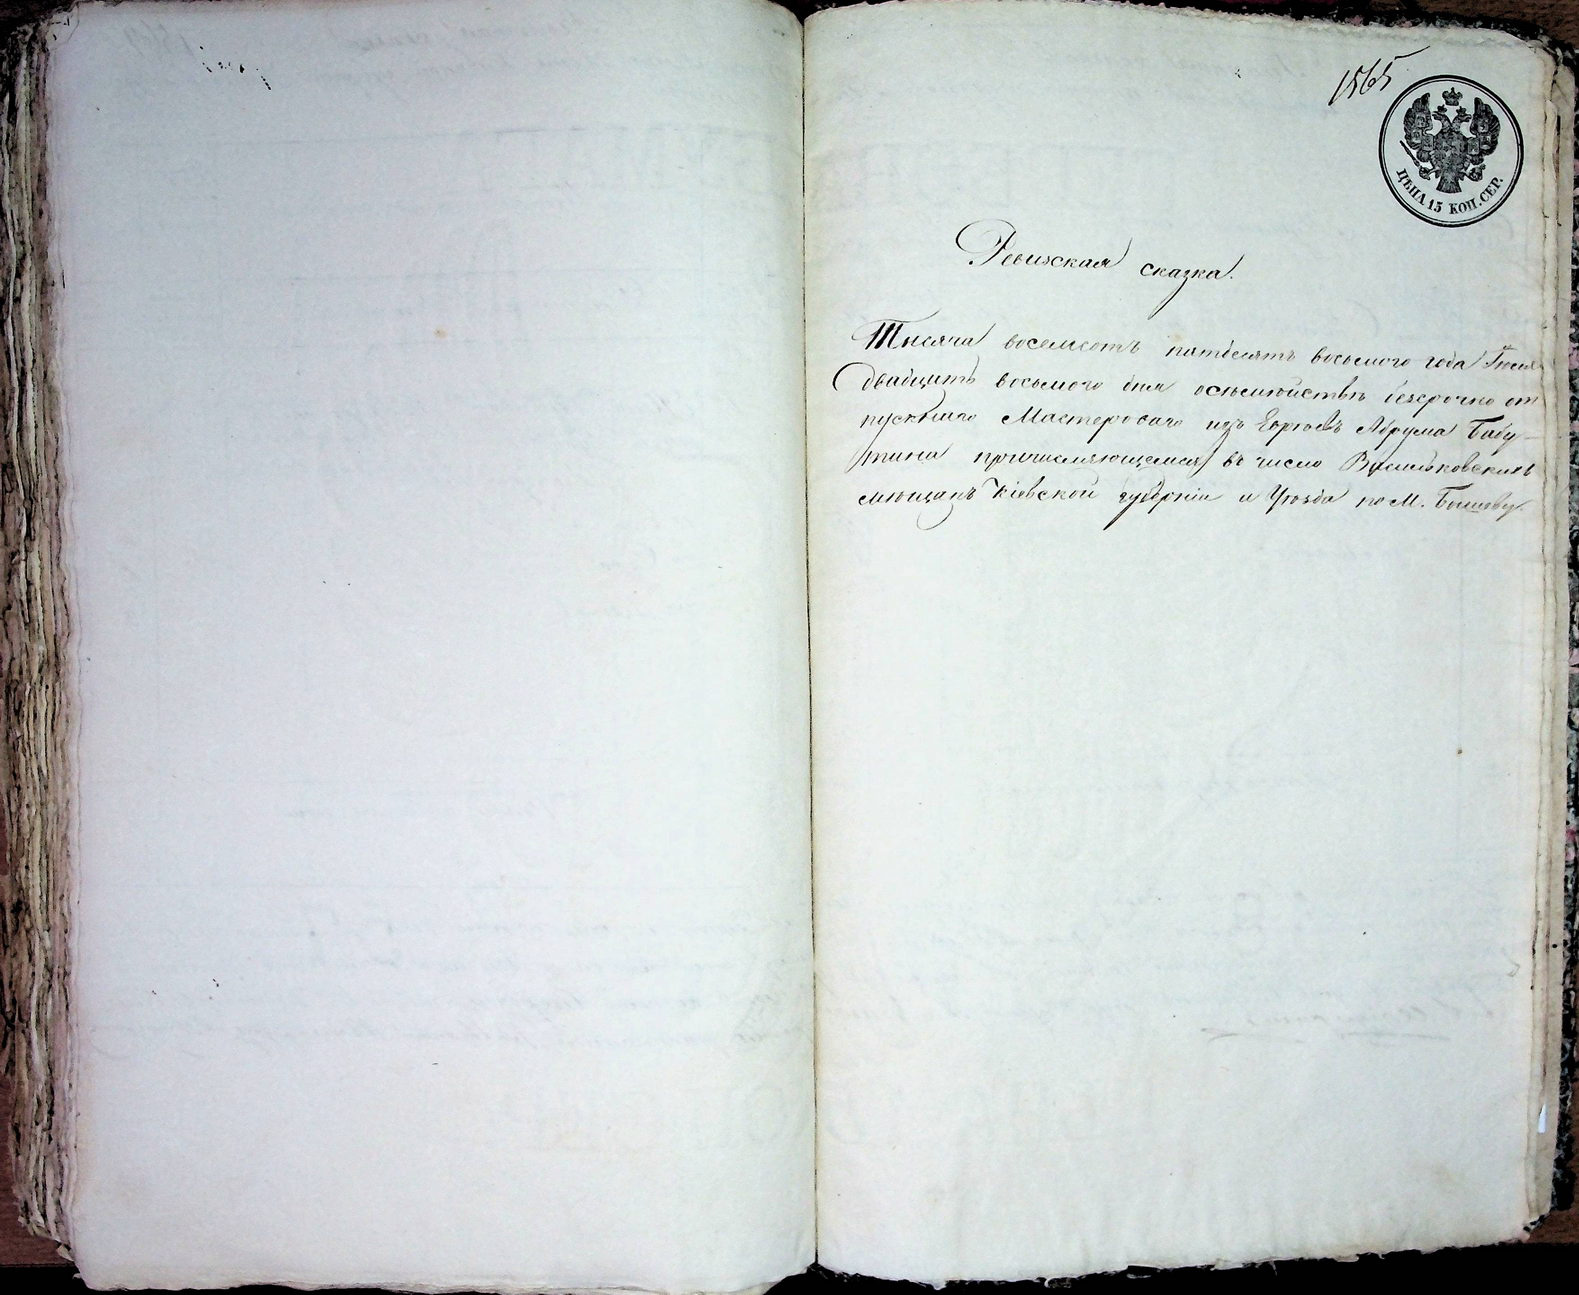 1565
ЦѢНА 15 КОП. СЕР.
Ревизская сказка.
Тысяча восемсотъ пятдесятъ восьмого года Июня
двадцать восьмого дня осѣмѣйствѣ безсрочно от
пускнаго Мастероваго изъ Евреевъ Абрума Бабу-
тина причисляющемся въ число Васильковскихъ
мѣщанъ Кіевской губерніи и Уѣзда по М. Бышеву.